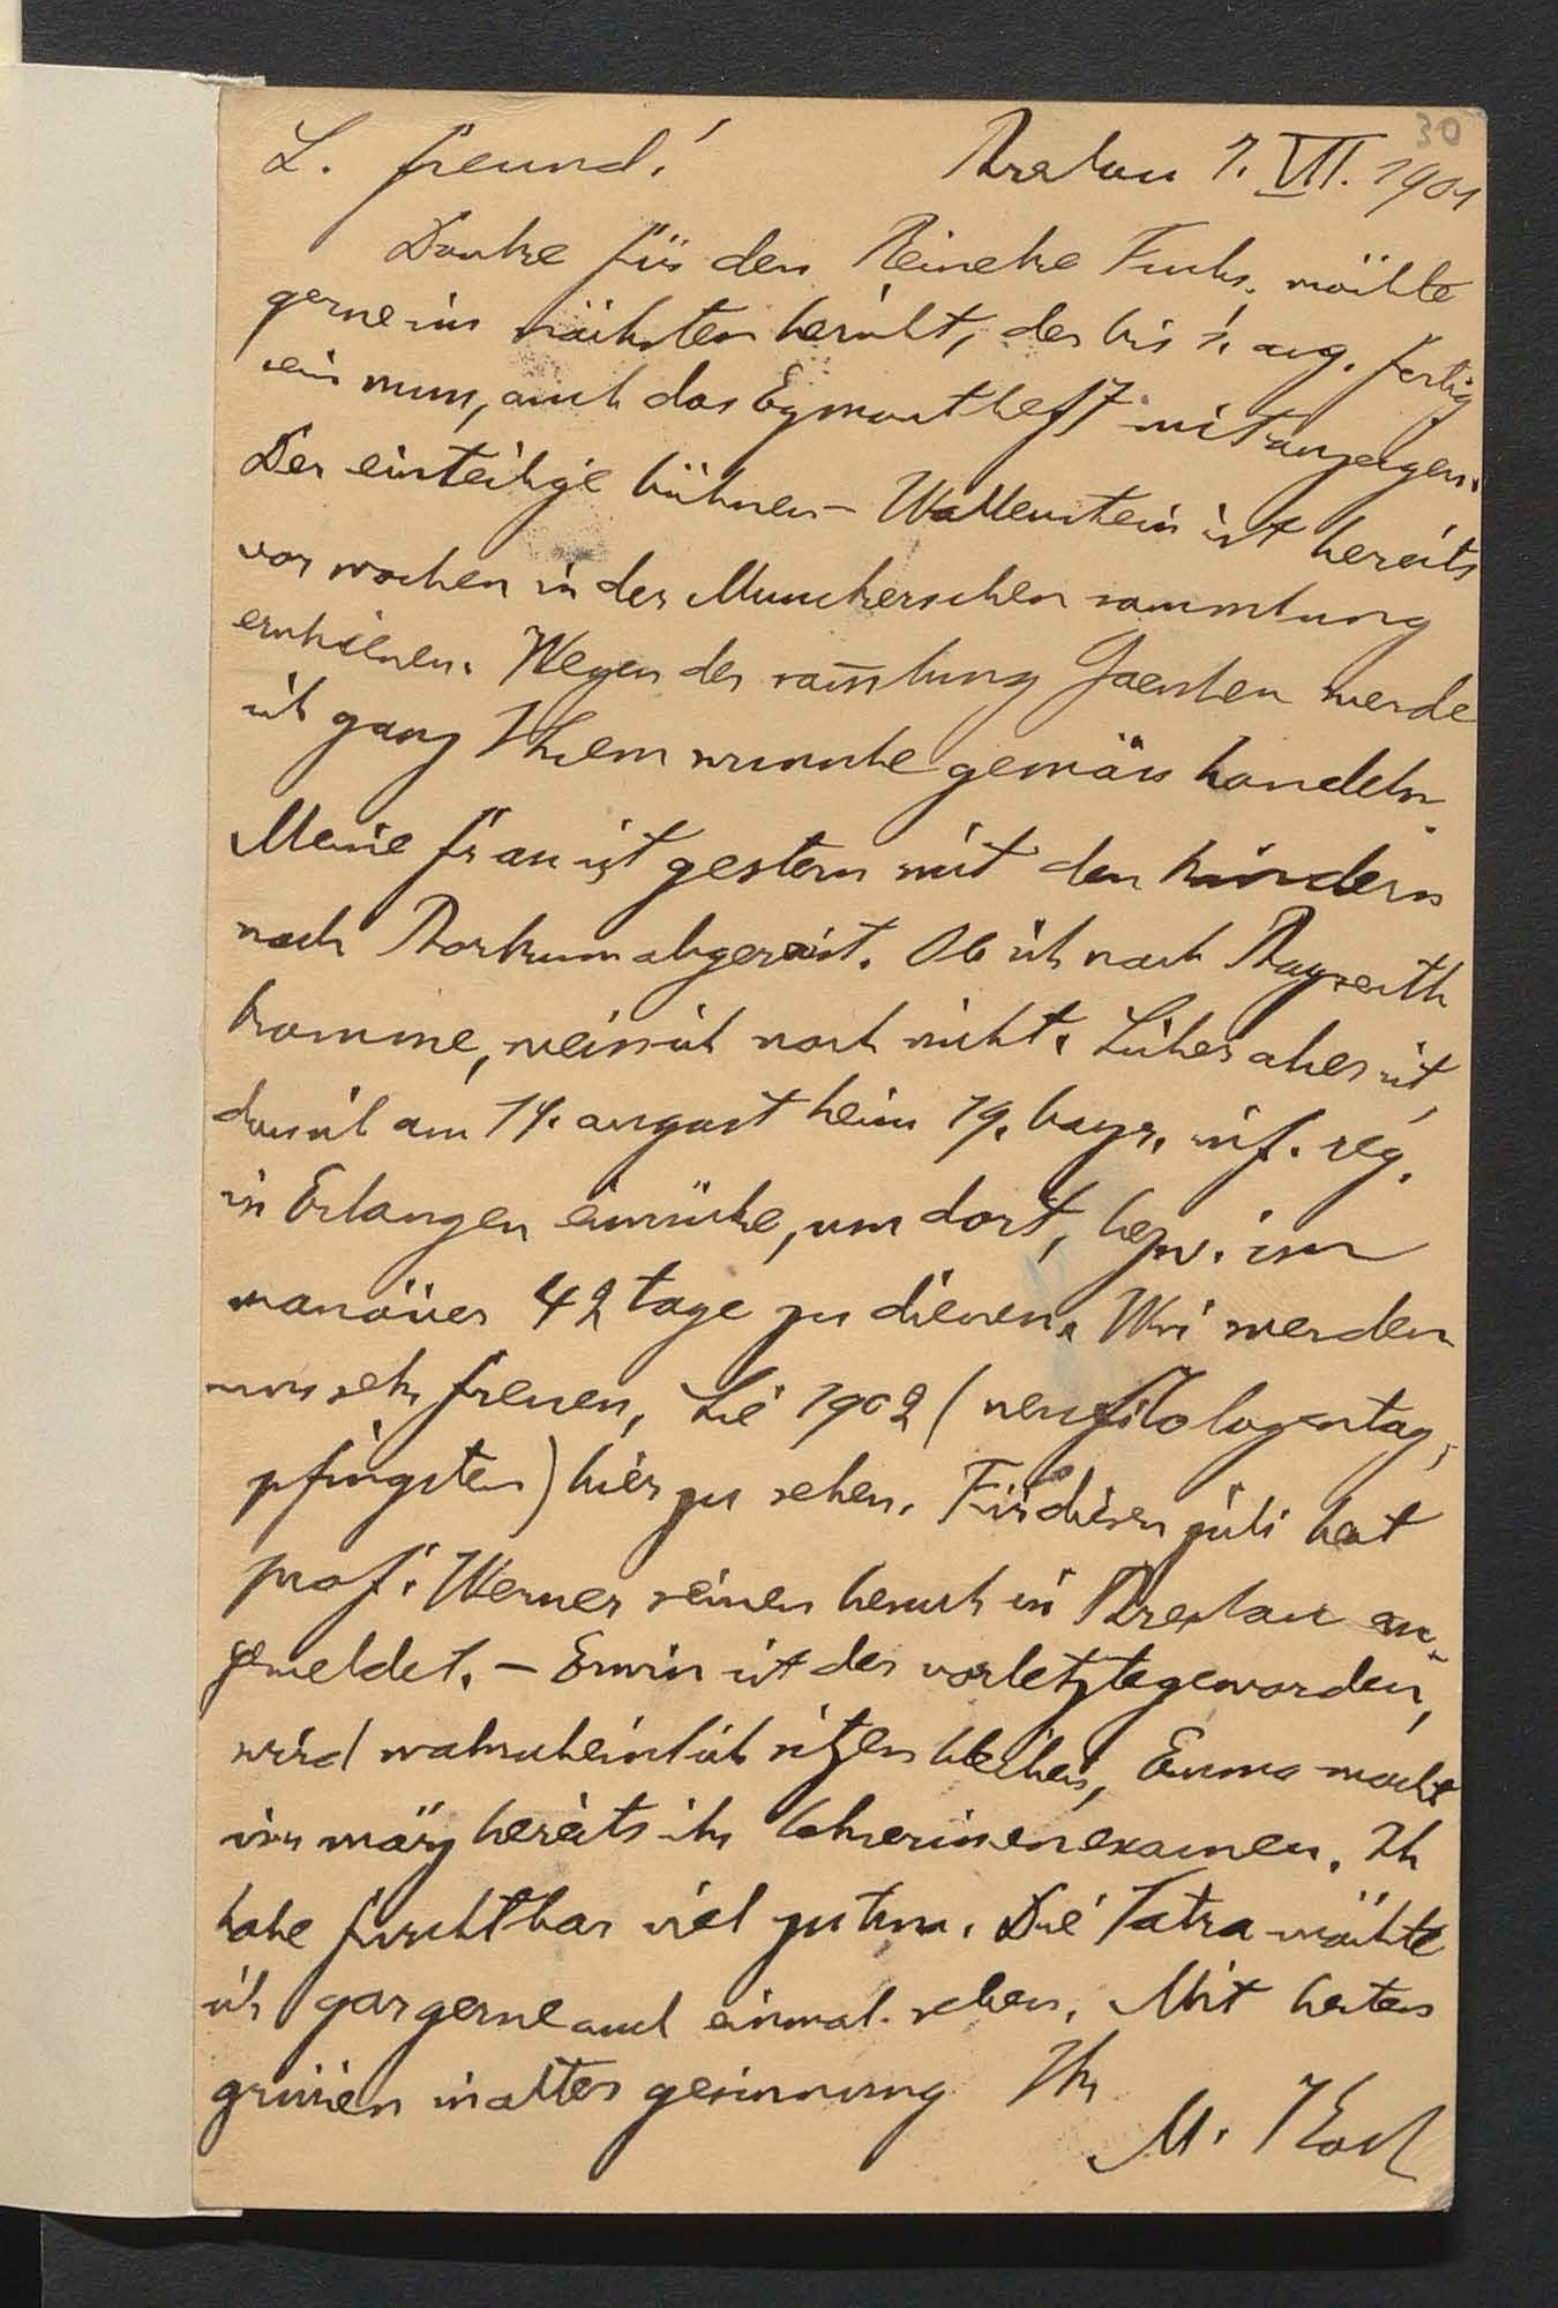 30
L. freund! Breslau 7. VII. 1901
Danke für den Reineke Fuchs, möchte
gerne im nächsten bericht, der bis 1. aug. fertig
sein muss, auch das Egmontheft mitanzeigen.
Der einteilige bühnen-Wallenstein ist bereits
vor wochen in der Munckerschen sammlung
erschienen. Wegen der sam̄lung Goeschen werde
ich ganz Ihrem wunsche gemäss handeln.
Meine frau ist gestern mit den kindern
nach Borkum abgereist. Ob ich nach Bayreuth
komme, weiss ich noch nicht. Sicher aber ist,
dass ich am 14. august beim 19. bayr. inf. reg.
in Erlangen einrücke, um dort, bezw. im
manöver 42 tage zu dienen. Wir werden
uns sehr freuen, Sie 1902 (neufilologentag,
pfingsten) hier zu sehen. Für diesen juli hat
prof. Werner seinen besuch in Breslau an-
gemeldet. – Erwin ist der vorletzte geworden,
wird wahrscheinlich sitzen bleiben, Emma macht
im märz bereits ihr lehrerinenexamen. Ich
habe furchtbar viel zu tun. Die Tatra möchte
ich gar gerne auch einmal sehen. Mit besten
grüssen in alter gesinnung Ihr
M. Koch